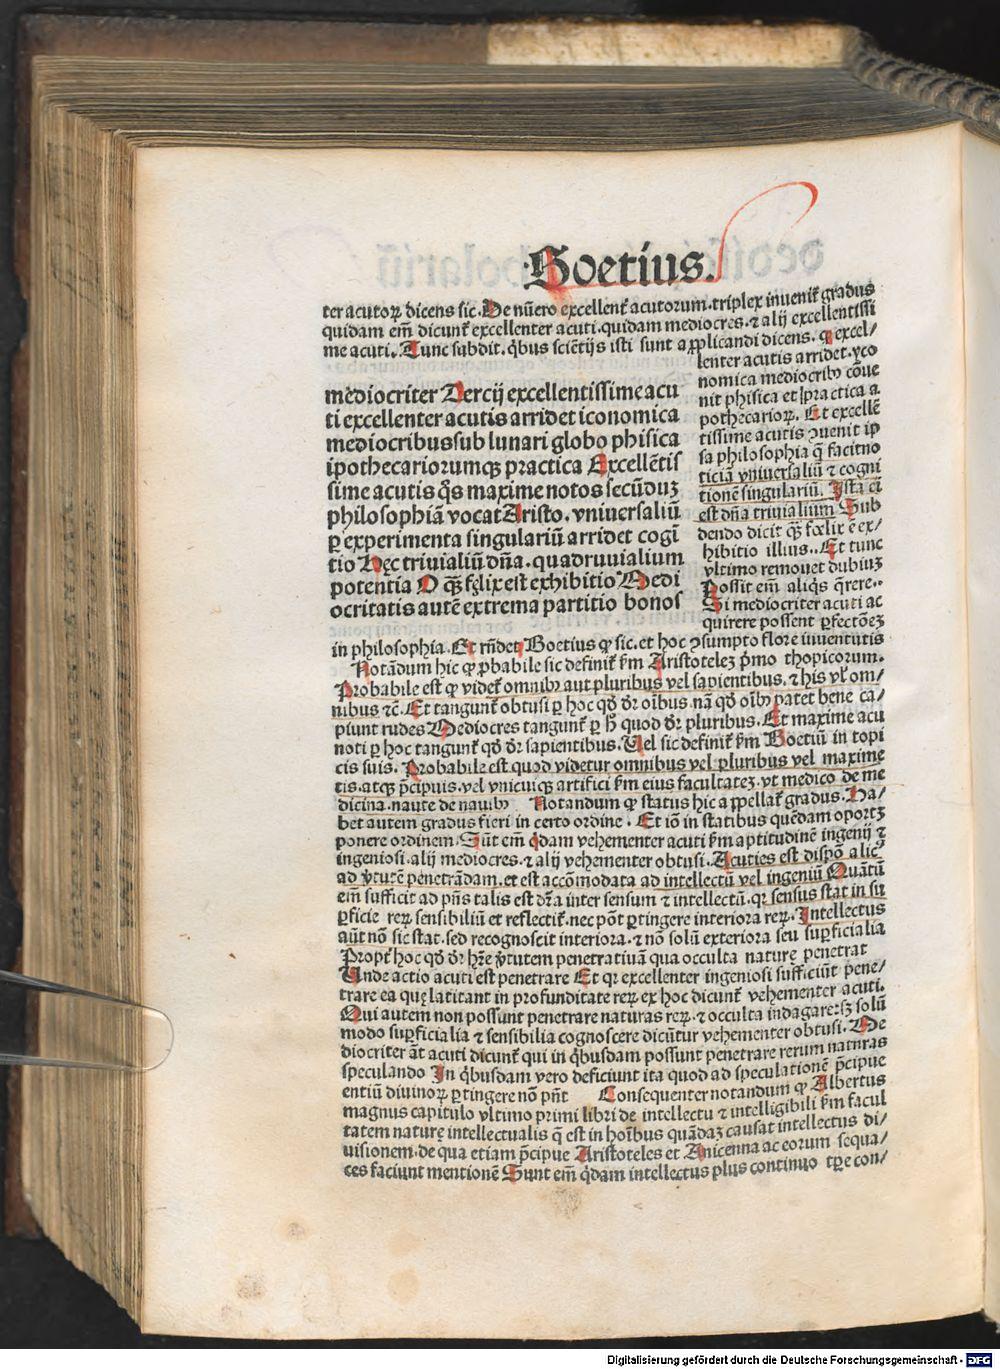 Boetius.
ter acutoꝝ dicens sic. De nũero excellent᷑ acutorum. triplex inuenit᷑ gradus
quidam em̃ dicunt᷑ excellenter acuti. quidam mediocres. ⁊ alij excellentissi
me acuti. Tunc subdit. q̇bus sciẽtijs isti sunt applicandi dicens. ꝙ excel/
lenter acutis arridet. yco
nomica mediocribꝰ cõue
nit phisica et practica a
pothecarioꝝ. Et excellẽ
tissime acutis ↄuenit ip
sa philosophia q̃ facit no
ticiã vniuersaliũ ⁊ cogni
tionẽ singulariũ. Ista em̃
est dña triuialium Sub
dendo dicit q̃ꝫ fœlix ẽ ex/
hibitio illius. Et tunc
vltimo remouet dubiuꝫ
Possit em̃ aliq̇s q̃rere.
Si mediocriter acuti ac
quirere possent ꝑfectõeꝫ
mediocriter Tercij excellentissime acu
ti excellenter acutis arridet iconomica
mediocribus sub lunari globo phisica
ipothecariorumqꝫ practica Excellẽtis
sime acutis q̃s maxime notos secũduꝫ
philosophiã vocat Aristo. vniuersaliũ
ꝑ experimenta singulariũ arridet cogĩ
tio Hęc triuialiũ dña. quadruuialium
potentia O q̃ꝫ fęlix est exhibitio Medi
ocritatis autẽ extrema partitio bonos
in philosophia. Et rñdet Boetius ꝙ sic. et hoc ↄsumpto flore iuuentutis
Notãdum hic ꝙ ꝓbabile sic definit᷑ ẜm Aristoteleꝫ p̃mo thopicorum.
Probabile est ꝙ videt᷑ omnibꝰ aut pluribus vel sapientibus. ⁊ his vl̓ om/
nibus ⁊c̃. Et tangunt᷑ obtusi ꝑ hoc qd̓ dr̃ oĩbus nã qd̓ oĩbꝰ patet bene ca/
piunt rudes Mediocres tangunt᷑ ꝑ h̓ quod dr̃ pluribus. Et maxime acu
noti ꝑ hoc tangunt᷑ qd̓ dr̃ sapientibus. Uel sic definit᷑ ẜm Boetiũ in topi
cis suis. Probabile est quod videtur omnibus vel pluribus vel maxime
tis. atqꝫ p̃cipuis. vel vnicuiqꝫ artifici ẜm eius facultateꝫ. vt medico de me
dicina. naute de nauibꝰ Notandum ꝙ status hic appellat᷑ gradus. Ha/
bet autem gradus fieri in certo ordine. Et iõ in statibus quẽdam oportꝫ
ponere ordinem. Sũt em̃ q̇dam vehementer acuti ẜm aptitudinẽ ingenij ⁊
ingeniosi. alij mediocres. ⁊ alij vehementer obtusi. Acuties est dispõ alicꝰ
ad ṽtutẽ penetrãdam. et est accõmodata ad intellectũ vel ingeniũ Quãtũ
em̃ sufficit ad pñs talis est dr̃a inter sensum ⁊ intellectũ. qꝛ sensus stat in su
ꝑficie reꝝ sensibiliũ et reflectit᷑. nec põt ꝑtingere interiora reꝝ. Intellectus
aũt nõ sic stat. sed recognoscit interiora. ⁊ nõ solũ exteriora seu suꝑficialia
Propt̓ hoc qd̓ dr̃ hr̃e ṽtutem penetratiuã qua occulta naturę penetrat
Unde actio acuti est penetrare Et qꝛ excellenter ingeniosi sufficiũt pene/
trare ea quę latitant in profunditate reꝝ ex hoc dicunt᷑ vehementer acuti.
Qui autem non possunt penetrare naturas reꝝ. ⁊ occulta indagare: sꝫ solũ
modo suꝑficialia ⁊ sensibilia cognoscere dicũtur vehementer obtusi. Me
diocriter ãt acuti dicunt᷑ qui in q̇busdam possunt penetrare rerum naturas
speculando In q̇busdam vero deficiunt ita quod ad speculationẽ p̃cipue
entiũ diuinoꝝ ꝑtingere nõ pñt Consequenter notandum ꝙ Albertus
magnus capitulo vltimo primi libri de intellectu ⁊ intelligibili ẜm facul
tatem naturę intellectualis q̃ est in hoĩbus quãdaꝫ causat intellectus di/
uisionem. de qua etiam p̃cipue Aristoteles et Auicenna ac eorum sequa/
ces faciunt mentionẽ Sunt em̃ q̇dam intellectus plus continuo tꝑe con/
Digitalisierung gefördert durch die Deutsche Forschungsgemeinschaft - DFG